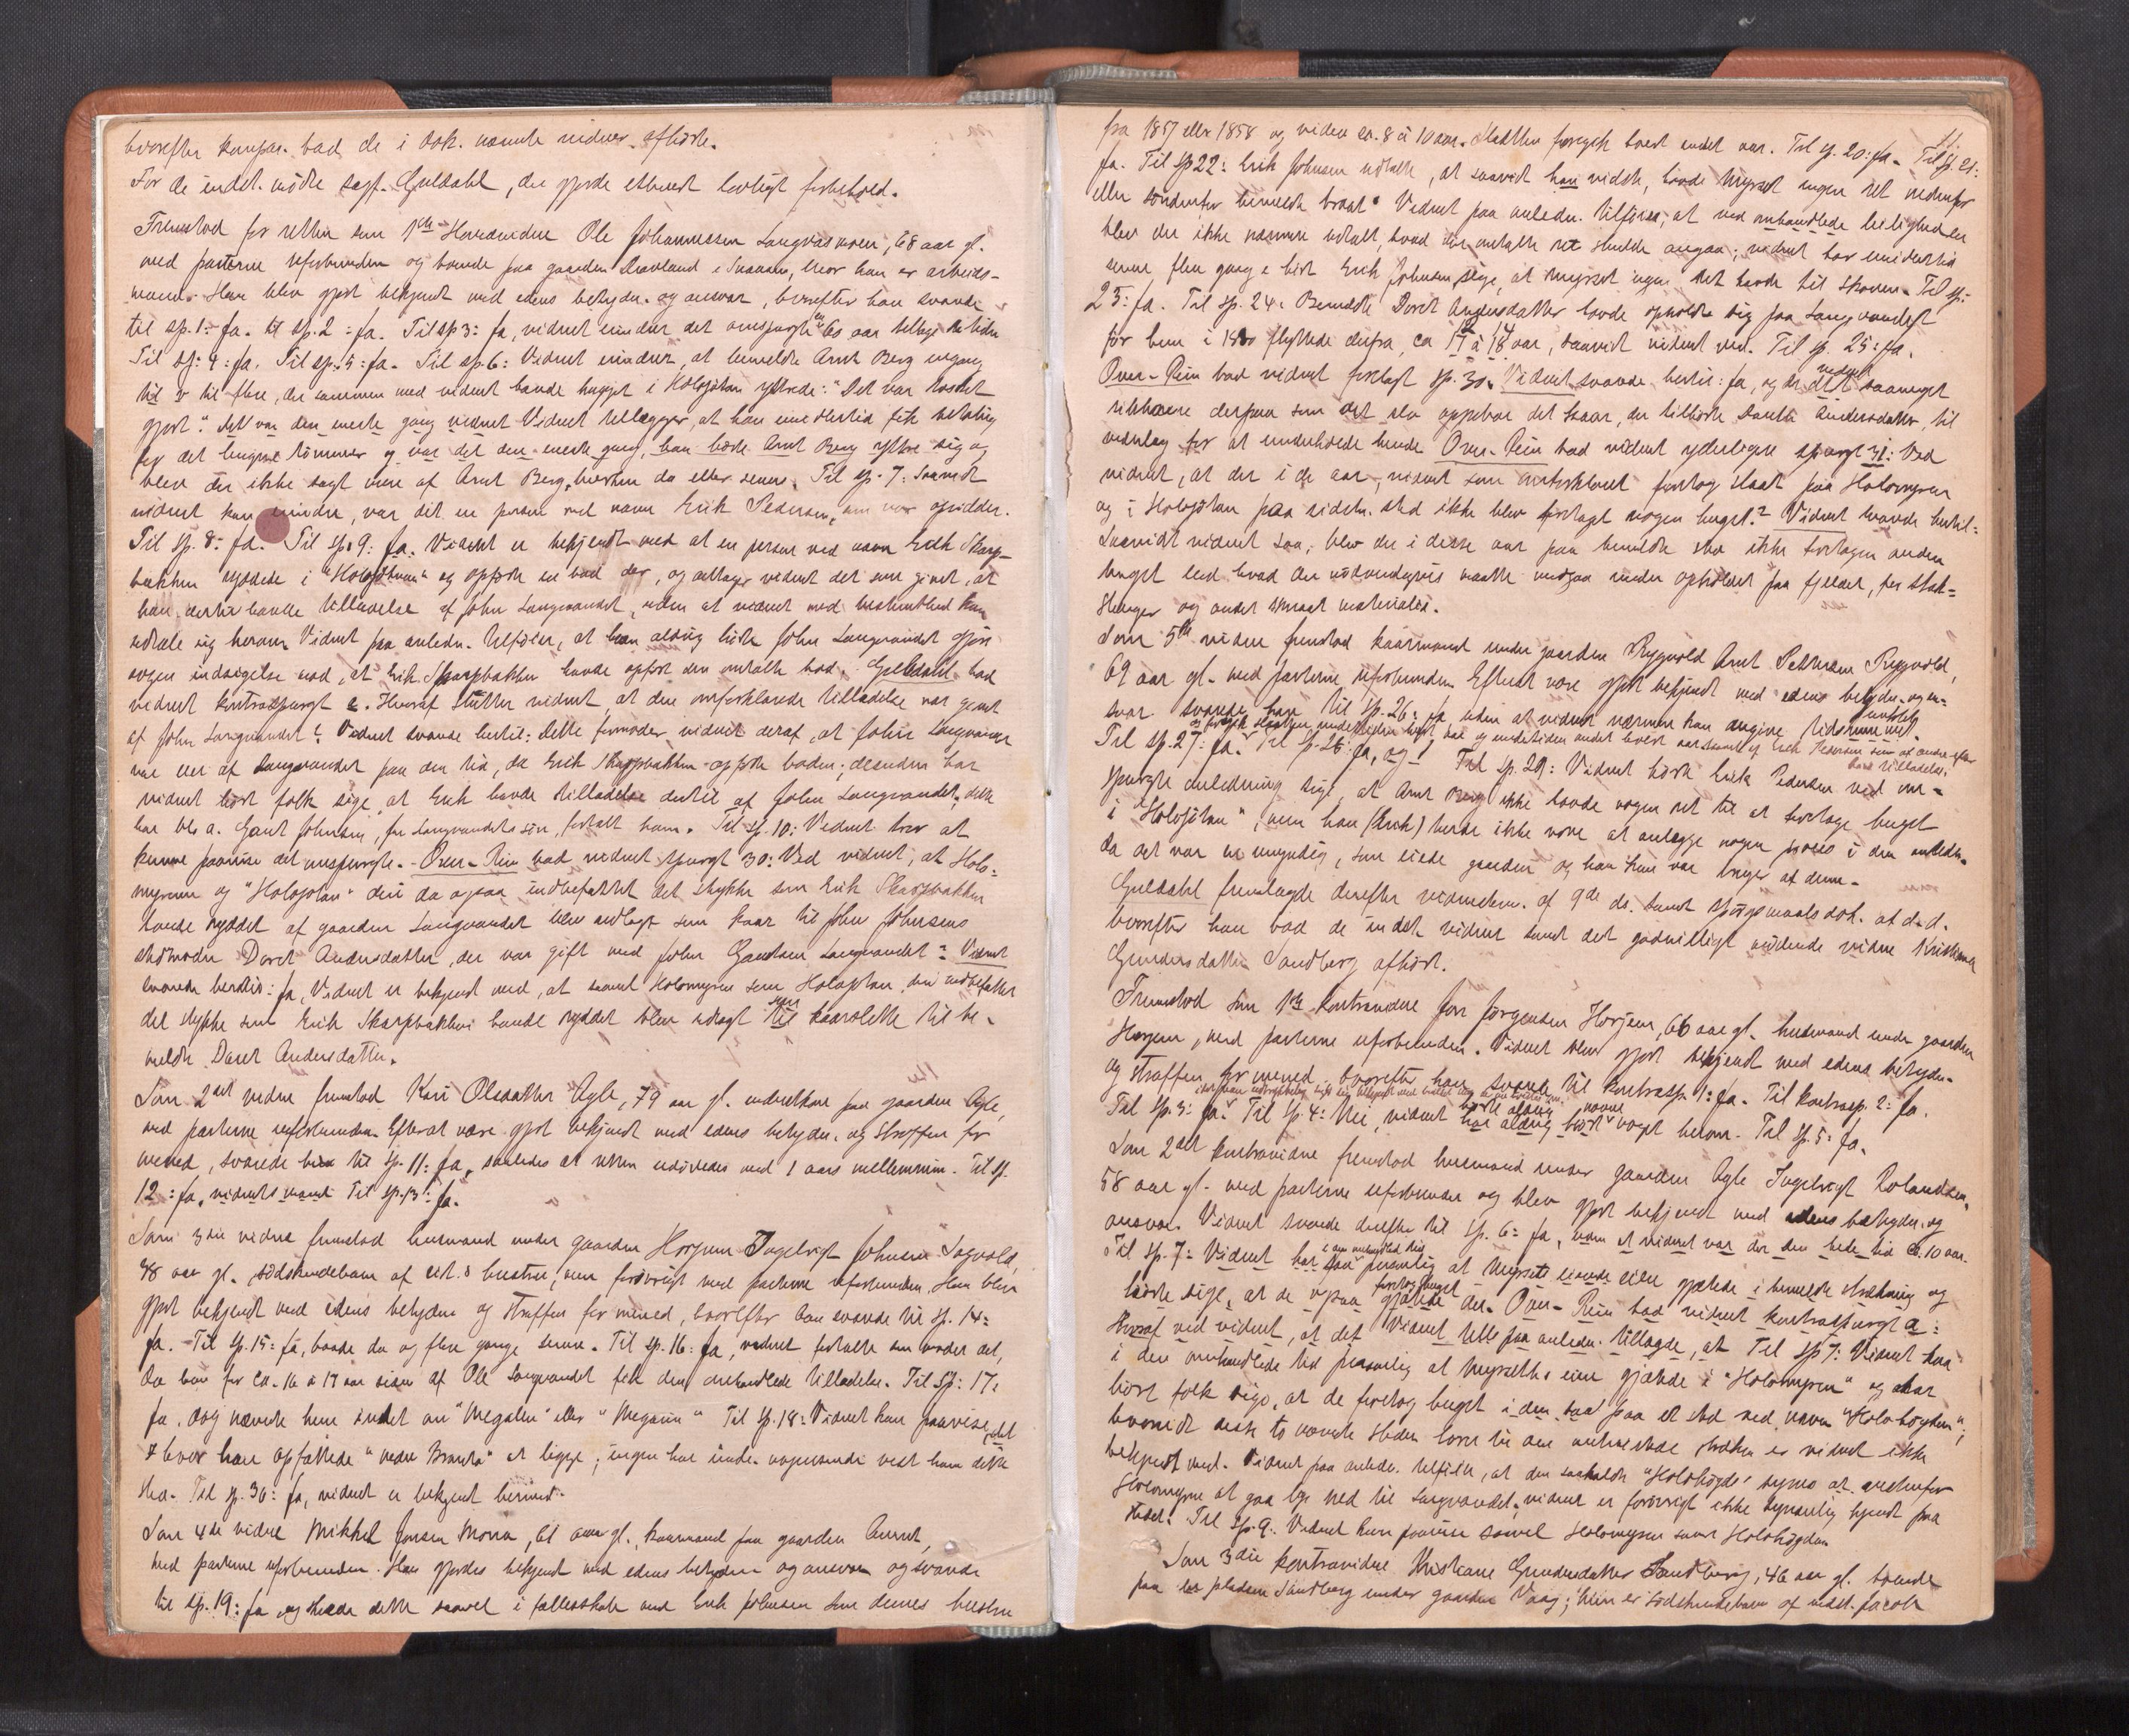 hvorefter kompar. bad de i dok. nævnte vidner afhørte.
For de indst. mødte sagf. Guldahl, der gjorde ethvert lovligt forbehold.
Fremstod for retten som 1ste Hovedvidne Ole Johannessen Langvasmoen, 68 aar gl.
med parterne uforbunden og boende paa gaarden Davland i Snaasen, hvor han er arbeids-
mand. Han blev gjort bekjendt med edens betydn. og ansvar, hvorefter han svarede
til sp. 1: Ja. til sp. 2: Ja. Til sp 3: Ja, vidnet minder det omspurgte ca 60 aar tilbage i tiden
Til sp: 4: Ja. Til sp. 5: Ja. Til sp. 6: Vidnet minder, at bemeldte Arnt Berg engang
til til flere, der sammen med vidnet havde hugget i Holosjølan yttrede: "Det var
gjort." Det var den eneste gang vidnet Vidnet tillægger, at han imidlertid fik betaling
for det hugne tømmer og var det den eneste gang, han hørte Arnt Berg yttre sig og
blev der ikke sagt mere af Arnt Berg, hverken da eller senere. Til sp. 7: Saavidt
vidnet kan minde, var det en person ved navn Erik Pedersen, som var opsidder.
Til sp. 8: Ja. Til sp. 9: Ja. Vidnet er bekjendt med at en person ved navn Erik Skarp-
bakken ryddede i "Holosjølan" og opførte en bod der, og antager vidnet det som givet, at
han dertil havde tilladelse af John Langvandet, uden at vidnet med bestemthed kan
udtale sig herom. Vidnet paa anledn. tilføier, at han aldrig hørte John Langvandet gjøre
nogen indsigelse mod, at Erik Skarpbakken havde opført den omtalte bod. Guldahl bad
vidnet kontraspurgt a. Hvoraf slutter vidnet, at den omforklarede tilladelse var givet
af John Langvandet? Vidnet svarede hertil: Dette formoder vidnet deraf, at John Langvandet
var eier af Langvandet paa den tid, da Erik Skarpbakken opførte boden; desuden har
vidnet hørt folk sige, at Erik havde tilladelse dertil af John Langvandet, dette
har bl. a. Gaut Johnsen, fra Langvandets søn, fortalt ham. Til sp. 10: Vidnet tror at
kunne paavise det omspurgte. - Over-Rein bad vidnet spurgt 30: Ved vidnet, at Holo-
myren og "Holosjolan" deri da ogsaa indbefattet det stykke som Erik Skarpbakken
havde ryddet af gaarden Langvandet blev udlagt som kaar til John Johnsens
stedmoder Doret Andersdatter, der var gift med John Gautsen Langvandet? Vidnet
svarede hertil: Ja, Vidnet er bekjendt med, at saavel Holomyren som Holosjølan, deri indbefattet
det stykke som Erik Skarpbakken havde ryddet blev udlagt som kaarslette til be-
meldte Doret Andersdatter.
Som 2det vidne fremstod Kari Olsdatter Agle, 79 aar gl. inderstkone paa gaarden Agle,
med parterne uforbunden. Efterat være gjort bekjendt med edens betydn. og straffen for
mened, svarede hun til sp. 11: Ja, saaledes at retten udøvedes med 1 aars mellemrum. Til sp.
12: Ja, vidnets mand. Til sp. 13: Ja.
Som 3die vidne fremstod husmand under gaarden Horjem Ingebrigt Johnsen Sagvold,
48 aar gl. sødskendebarn af cit.s hustru, men forøvrigt med parterne uforbunden. Han blev
gjort bekjendt med edens betydn og straffen for mened, hvorefter han svarede til sp. 14:
Ja. - Til sp. 15: Ja, baade da og flere gange senere. Til sp. 16: Ja, vidnet fortalte sin moder det,
da hun for ca. 16 à 17 aar siden af Ole Langvandet fik den omhandlede tilladelse. Til sp: 17:
Ja, dog nævnte hun intet om "Megalen" eller "Megarin" Til sp. 18: Vidnet kan paavise, det
hvor han opfattede "nedre Brandt" at ligge; ingen har imidl. nogensinde vist ham dette
sted. Til sp. 36: Ja, vidnet er bekjendt hermed.
Som 4de vidne Mikkel Jonsen Mona, 61 aar gl., kaarmand paa gaarden Aunet,
med parterne uforbunden. Han gjordes bekjendt med edens betydn og ansvar og svarede
til sp. 19: Ja og skede dette saavel i fællesskab med Erik Johnsen som dennes hustru
11.
fra 1857 eller 1858 og videre ca. 8 à 10 aar. Slaatten foregik hvert andet aar. Til sp. 20: Ja. Til sp. 21:
Ja. Til sp 22: Erik Johnsen udtalte, at saavidt han vidste, havde Myrset ingen ret nedenfor
eller søndenfor bemeldte braat. Vidnet paa anledn. tilføier, at ved omhandlede leiligheden
blev der ikke nærmere udtalt, hvad der omtalte ret skulde angaa; vidnet har imidlertid
senere flere gange hørt Erik Johnsen sige, at Myrset ingen ret havde til skoven. Til sp.
23: Ja. Til sp. 24: Bemeldte Doret Andersdatter havde opholdt sig paa Langvandet
før hun i 1880 flyttede derfra, ca 17 à 18 aar, saavidt vidnet ved. Til sp. 25: Ja.
Over-Rein bad vidnet forelagt sp. 30. Vidnet svarede hertil: Ja, og ved det vidnet saameget
sikkrere derpaa som det selv oppebar det kaar, der tilhørte Dorete Andersdatter, til
vederlag for at underholde hende. Over-Rein bad vidnet yderligere spurgt 31: Ved
vidnet, at der i de aar, vidnet som omforklaret foretog slaat paa Holomyren
og i Holosjølan paa sidstn. sted ikke blev foretaget nogen hugst? Vidnet svarede hertil:
Saavidt vidnet saa, blev der i disse aar paa bemeldte sted ikke foretagen anden
hugst end hvad der nødvendigvis maatte medgaa under opholdet paa fjeldet, som stak-
stenger og andet smaat materiale.
Som 5te vidne fremstod kaarmand under gaarden Rygvold Arnt Pettersen Rygvold,
69 aar gl. med parterne uforbunden. Efterat være gjort bekjendt med edens betydn. og an-
svar svarede han til sp. 26: Ja, uden at vidnet nærmere kan angive tidsrummet.
Til sp. 27: Ja. Til sp 28: Ja, og Til sp. 29: Vidnet hørte Erik Pedersen ved om-
spurgte anledning sige, at Arnt Berg ikke havde nogen ret til at foretage hugst
i "Holosjølan", men han (Erik) turde ikke være at anlægge nogen proces i den anledn.
da det var en umyndig, som eiede gaarden og han kun var bruger af denne.
Guldahl fremlagde derefter vidnestevn. af 9de ds. samt spørgsmaalsdok. at d. d.
hvorefter han bad de indstn. vidner samt det godvilligt mødende vidne Kristiane
Gundersdatter Sandberg afhørt.
Fremstod som 1ste kontravidne Jon Jørgensen Horjem, 66 aar gl. husmand under gaarden
Horjem, med parterne uforbunden. Vidnet blev gjort bekjendt med edens betydn.
og straffen for mened, hvorefter han svarede til kontrasp. 1: Ja. Til kontrasp. 2: Ja.
Til sp. 3: Ja. Til sp. 4: Nei, vidnet hørte aldrig noget herom. Til sp. 5: Ja.
Som 2det kontravidne fremstod husmand under gaarden Agle Ingebrigt Rolandsen,
58 aar gl. med parterne uforbunden og blev gjort bekjendt med edens betydn. og
ansvar. Vidnet svarede derefter til sp. 6: Ja, uden at vidnet var der den hele tid ca. 10 aar.
Til sp. 7: Vidnet har i den omhandlede tid seet personlig at Myrsets eiere gjætede i bemeldte strækning og
hørte sige, at de ogsaa foretog hugst der. Over-Rein bad vidnet kontraspurgt a:
Hvoraf ved vidnet, at det Vidnet dette paa anledn. tillagde, at Til sp 7: Vidnet saa
i den omhandlede tid personlig at Myrsets eiere gjætede i "Holomyren" og har
hørt folk sige, at de foretog hugst i den paa et sted ved navn "Holohøgden";
hvorvidt disse to nævnte steder hører til den omtvistede strækn er vidnet ikke
bekjendt med. Vidnet paa anledn. tilføier, at den saakaldte "Holohøgde" synes at nedenfor
Holomyren at gaa lige ned til Langvandet; vidnet er forøvrigt ikke synderlig kjendt paa
stedet. Til sp. 9: Vidnet kan paavise saavel Holomyren som Holohøgden.
Som 3die kontravidne Kristiane Gundersdatter Sandberg, 46 aar gl. boende
paa pladsen Sandberg under gaarden Vaag; hun er sødskendebarn af indst. Jacob